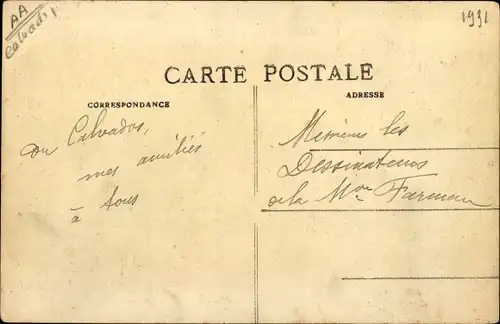 AA
Calvados
1931
CARTE POSTALE
CORRESPONDANCE
ADRESSE
du Calvados,
mes amitiés
à tous
Messieurs les
Dessinateurs
de la Mon Farman